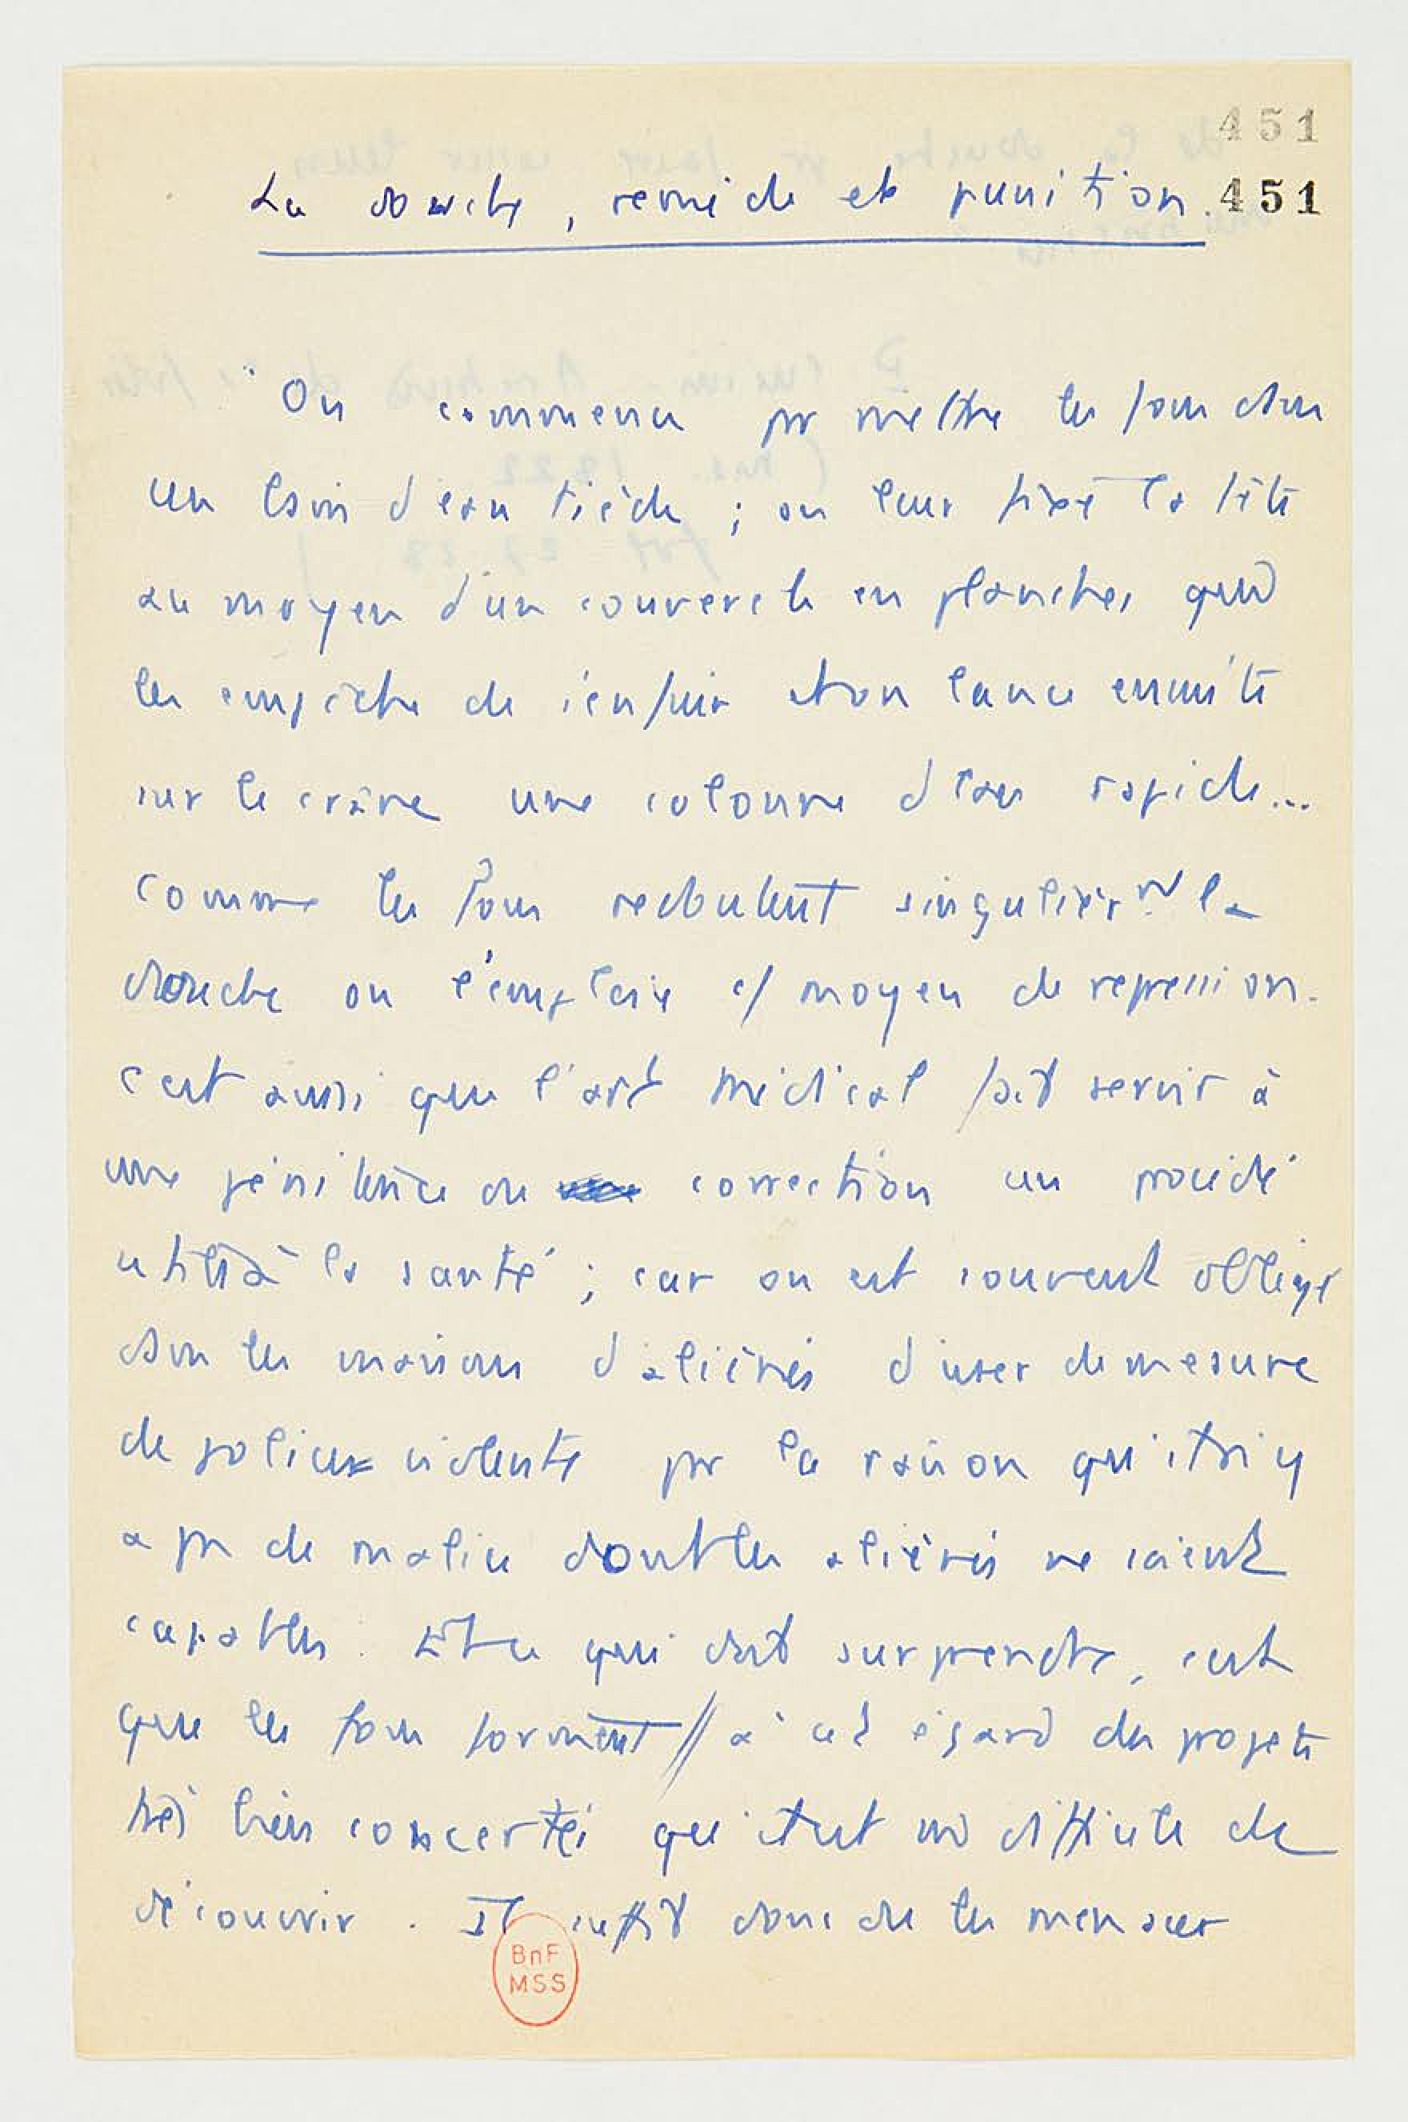 451
La douche, remède et punition. 451
" On commence pr mettre les fous dans
un bain d'eau tiède ; on leur fixe la tête
au moyen d'un couvercle en planches qui
les empêche de s'enfuir et on lance ensuite
sur le crâne une colonne d'eau rapide...
Comme les fous redoutent singulièrmt la
douche on l'emploie c/ moyen de repression.
C'est ainsi que l'art médical fait servir à
une pénitence de correction un procédé
utile à la santé ; car on est souvent obligé
dans les maisons d'aliénés d'user de mesure
de police violente pr la raison qu'il n'y
a pas de malice dont les aliénés ne soient
capables. Et ce qui doit surprendre, c'est
que les fous forment // à cet égard des projets
très bien concertés qu'il est difficile de
découvrir. Il suffit donc de les menacer
BnF
MSS